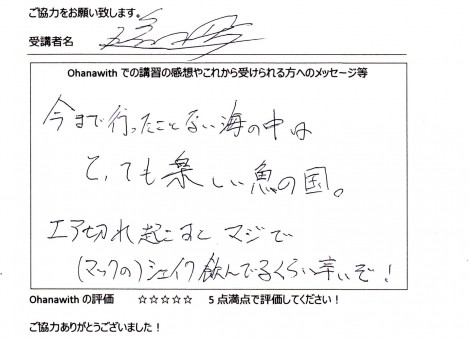 ご協力をお願い致します。
受講者名
Ohanawith での講習の感想やこれから受けられる方へのメッセージ等
今まで行ったことない海の中は
とっても楽しい魚の国。
エア切れ起こすと マジで
(マックの)シェイク飲んでるくらい辛いぞ!
Ohanawith の評価 ☆☆☆☆☆ 5点満点で評価してください!
ご協力ありがとうございました!